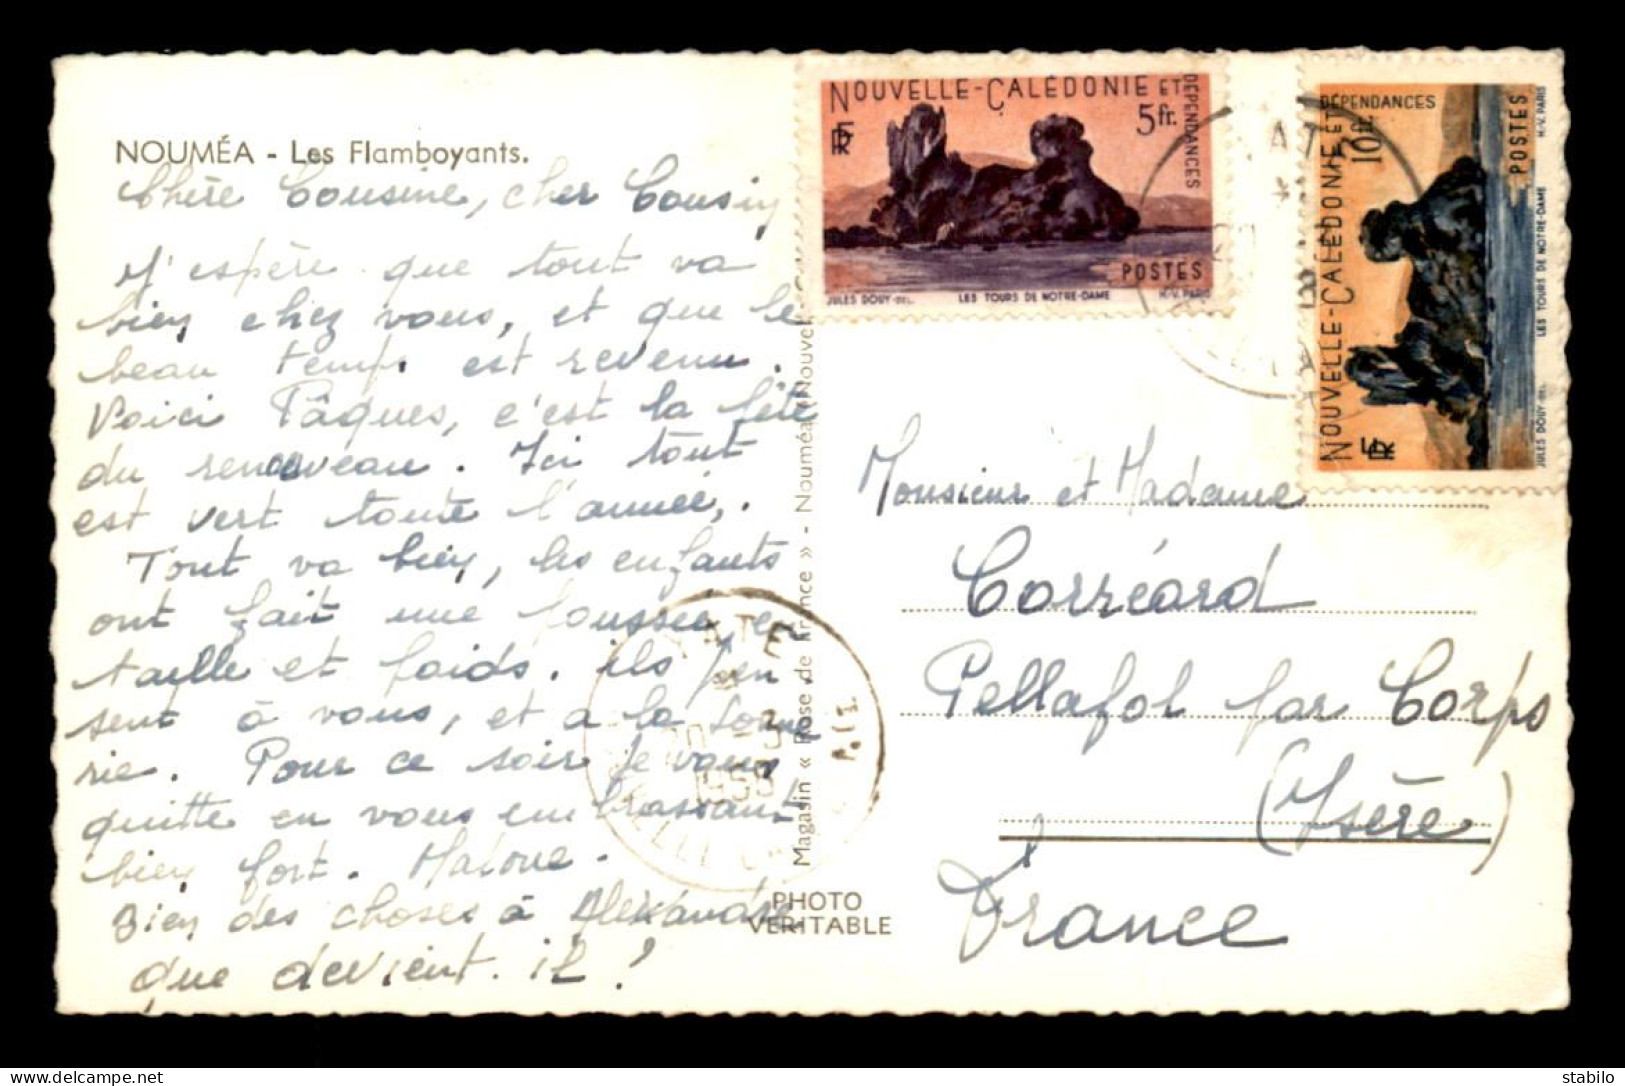 NOUMÉA - Les Flamboyants.
Chère Cousine, cher Cousin
J'espère que tout va
bien chez vous, et que le
beau temps est revenu.
Voici Pâques, c'est la fête
du renouveau. Ici tout
est vert toute l'année.
Tout va bien, les enfants
ont fait une poussée en
taille et poids. ils pen
sent à vous, et a la Sonne
rie. Pour ce soir je vous
quitte en vous embrassant
bien fort. Malone.
Bien des choses à Alexandre
que devient-il ?
Magasin « Rose de France » - Nouméa (Nouvel
PHOTO
VERITABLE
NOUVELLE-CALÉDONIE ET
DÉPENDANCES
RF
5 fr.
POSTES
JULES DOUY-DEL. LES TOURS DE NOTRE-DAME H.V. PARIS
NOUVELLE-CALÉDONIE ET
DÉPENDANCES
RF
10 fr.
POSTES
JULES DOUY-DEL. LES TOURS DE NOTRE-DAME H.V. PARIS
YATE
20 -3
Monsieur et Madame
Corréard
Pellafol par Corps
(Isère)
France
stabilo